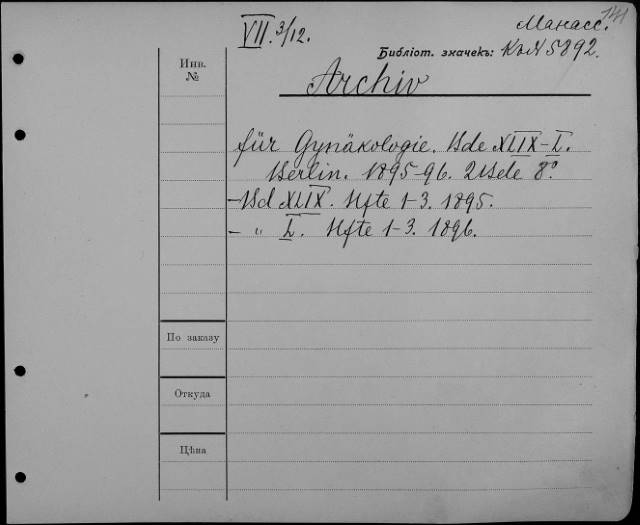 141
Манасс.
VII. 3/12.
Библіот. значекъ: К № 5892.
Инв.
№
Archiv
für Gynäkologie. Bde XLIX-L.
Berlin. 1895-96. 2 Bde 8°.
- Bd XLIX. Hfte 1-3. 1895.
- " L. Hfte 1-3. 1896.
По заказу
Откуда
Цѣна